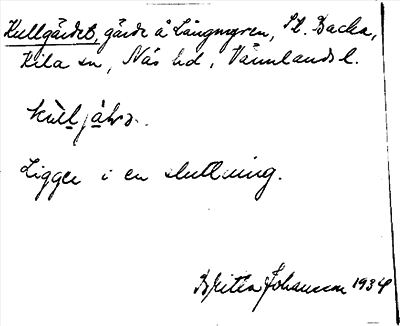 Kullgärdet, gärde å Långmyren, St. Backa,
Kila sn, Näs hd, Värmlands l.
Ligger i en sluttning.
Britta Johansson 1934